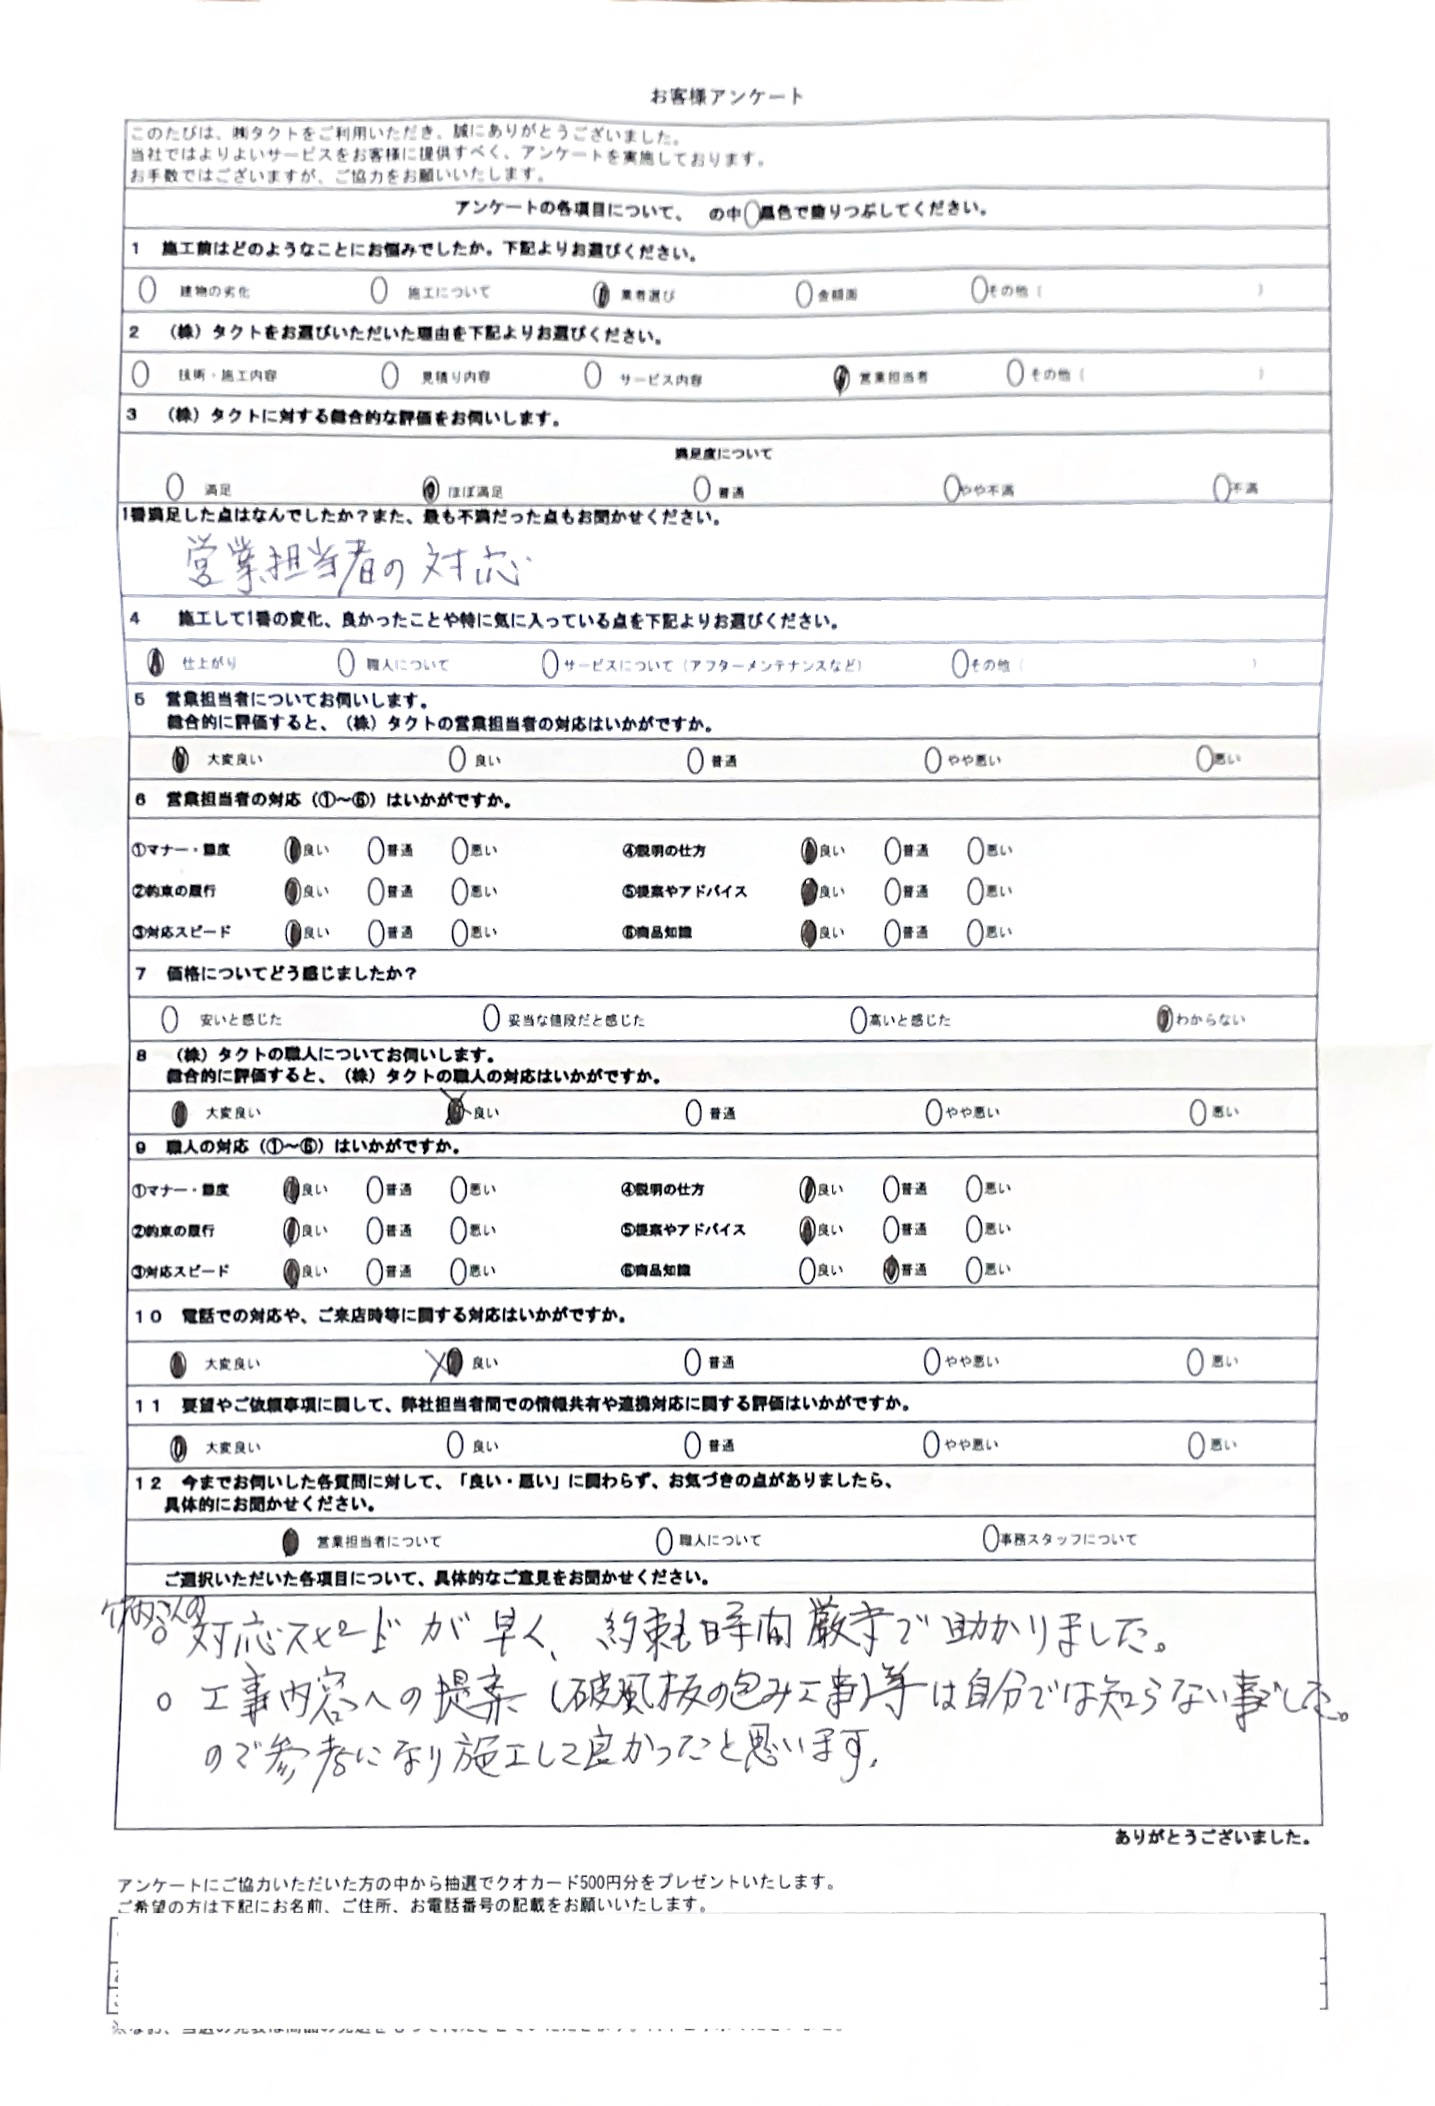 お客様アンケート
このたびは、㈱タクトをご利用いただき、誠にありがとうございました。
当社ではよりよいサービスをお客様に提供すべく、アンケートを実施しております。
お手数ではございますが、ご協力をお願いいたします。
アンケートの各項目について、 の中 黒色で塗りつぶしてください。
1 施工前はどのようなことにお悩みでしたか。下記よりお選びください。
建物の劣化 施工について 業者選び 金額面 その他（ ）
2 （株）タクトをお選びいただいた理由を下記よりお選びください。
技術・施工内容 見積り内容 サービス内容 営業担当者 その他（ ）
3 （株）タクトに対する総合的な評価をお伺いします。
満足度について
満足 ほぼ満足 普通 やや不満 不満
1番満足した点はなんでしたか？また、最も不満だった点もお聞かせください。
営業担当者の対応
4 施工して1番の変化、良かったことや特に気に入っている点を下記よりお選びください。
仕上がり 職人について サービスについて（アフターメンテナンスなど） その他（ ）
5 営業担当者についてお伺いします。
総合的に評価すると、（株）タクトの営業担当者の対応はいかがですか。
大変良い 良い 普通 やや悪い 悪い
6 営業担当者の対応（①～⑥）はいかがですか。
①マナー・態度 良い 普通 悪い ④説明の仕方 良い 普通 悪い
②約束の履行 良い 普通 悪い ⑤提案やアドバイス 良い 普通 悪い
③対応スピード 良い 普通 悪い ⑥商品知識 良い 普通 悪い
7 価格についてどう感じましたか？
安いと感じた 妥当な値段だと感じた 高いと感じた わからない
8 （株）タクトの職人についてお伺いします。
総合的に評価すると、（株）タクトの職人の対応はいかがですか。
大変良い 良い 普通 やや悪い 悪い
9 職人の対応（①～⑥）はいかがですか。
①マナー・態度 良い 普通 悪い ④説明の仕方 良い 普通 悪い
②約束の履行 良い 普通 悪い ⑤提案やアドバイス 良い 普通 悪い
③対応スピード 良い 普通 悪い ⑥商品知識 良い 普通 悪い
10 電話での対応や、ご来店時等に関する対応はいかがですか。
大変良い 良い 普通 やや悪い 悪い
11 要望やご依頼事項に関して、弊社担当者間での情報共有や連携対応に関する評価はいかがですか。
大変良い 良い 普通 やや悪い 悪い
12 今までお伺いした各質問に対して、「良い・悪い」に関わらず、お気づきの点がありましたら、
具体的にお聞かせください。
営業担当者について 職人について 事務スタッフについて
ご選択いただいた各項目について、具体的なご意見をお聞かせください。
竹内さんの
○ 対応スピードが早く、約束も時間厳守で助かりました。
○ 工事内容への提案（破風板の包み工事）等は自分では知らない事でした。
ので参考になり施工して良かったと思います。
ありがとうございました。
アンケートにご協力いただいた方の中から抽選でクオカード500円分をプレゼントいたします。
ご希望の方は下記にお名前、ご住所、お電話番号の記載をお願いいたします。